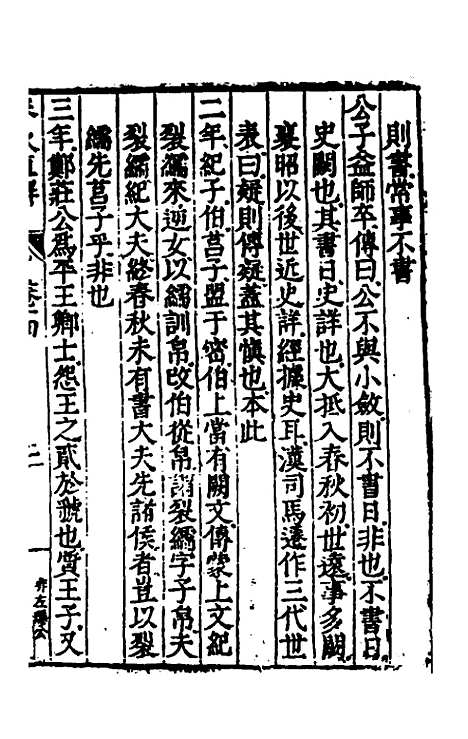 則書常事不書
公子益師卒傳曰公不與小斂則不書日非也不書日
史闕也其書日史詳也大抵入春秋初世遠事多闕
襄昭以後世近史詳經據史耳漢司馬遷作三代世
表曰疑則傳疑蓋其慎也本此
二年紀子伯莒子盟于密伯上當有闕文傳蒙上文紀
裂繻來逆女以繻訓帛改伯從帛謂裂繻字子帛夫
裂繻紀大夫終春秋未有書大夫先諸侯者豈以裂
繻先莒子乎非也
三年鄭莊公為平王卿士怨王之貳於虢也質王子又